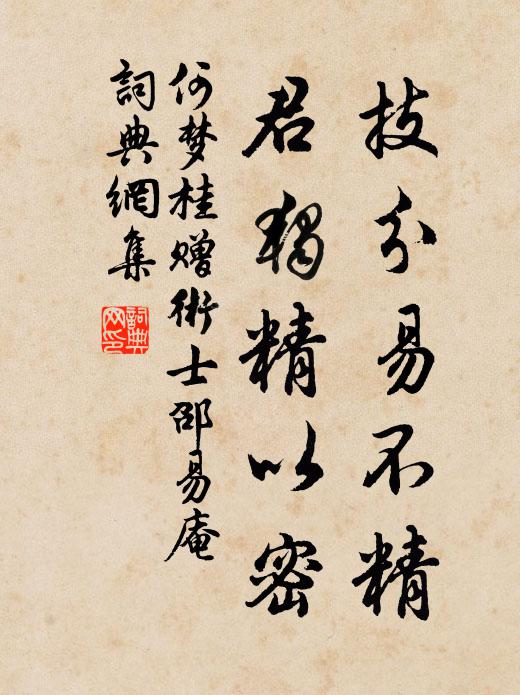 技分易不精
君獨精以密
何梦桂赠術士邵易庵
詞典網集
詞典网印